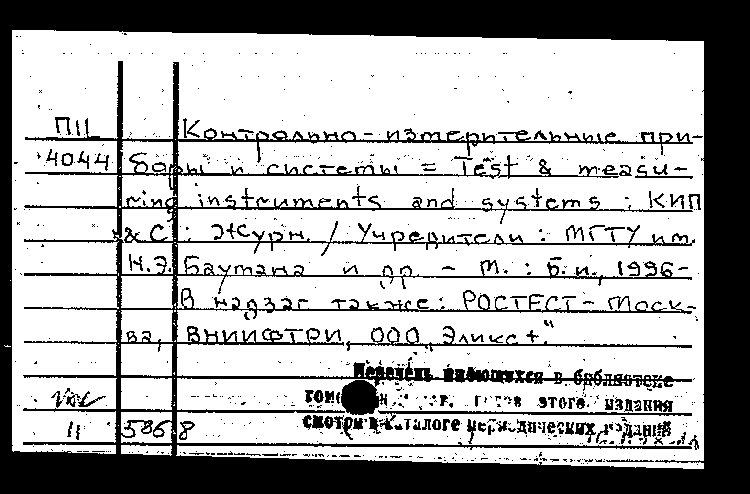 П11 Контрольно-измерительные при-
4044 боры и системы = Test & measu-
ring instruments and systems : КИП
& С : Журн. / Учредители : МГТУ им.
Н.Э. Баумана и др. - М. : Б.и., 1996-
В надзаг также: РОСТЕСТ-Моск-
ва, ВНИИФТРИ, ООО „Эликс+."
Перечень имеющихся в библиотеке
этого издания
смотри в каталоге периодических изданий
11 586 8